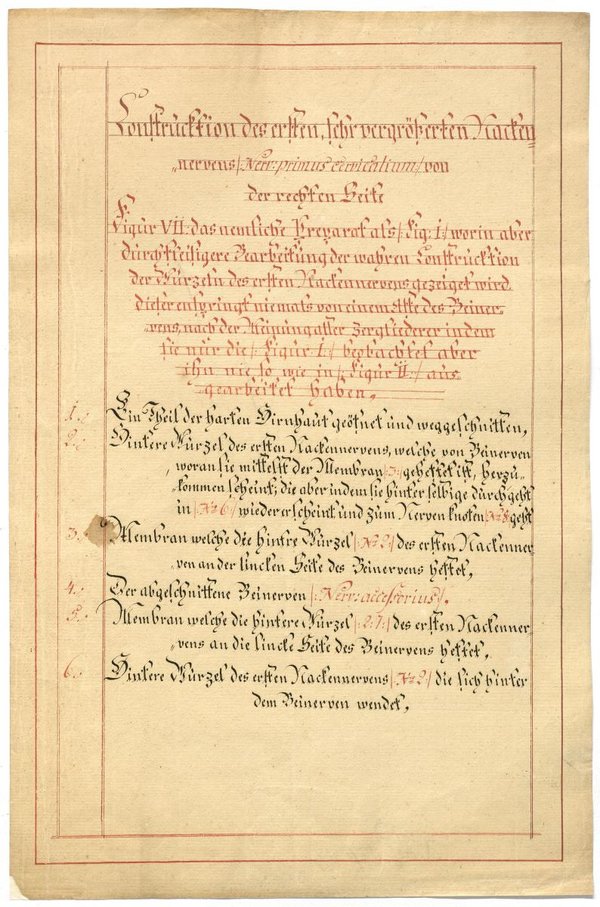 Construcktion des ersten, sehr vergrößerten Nacken=
„nervens /: Nerv: primus cervicalium :/ von
der rechten Seite
Figur VII: das nemliche Preparat als /: Fig: I :/ worin aber
durch fleisigere Bearbeitung der wahren Construcktion
der Wurzeln des ersten Nackennervens gezeiget wird
dieser entspringt niemals von einem Aste des Beiner-
„vens, nach der Meinung aller Zergliederer indem
sie nur die /: Figur I. :/ beobachtet aber
ihn nie so wie in /: Figur II :/ aus
gearbeitet haben.
1.: Ein Theil der harten Hirnhaut geöfnet und weggeschnitten,
2.: Hintere Wurzel des ersten Nackennervens, welche von Beinerven
„woran sie mittelst der Membran /: 3 :/ geheftet ist, herzu-
„kommen scheint; die aber indem sie hinter selbige durchgeht
in /: No 6 :/ wieder erscheint und zum Nerven knoten /: No 8 :/ geht
3.: Membran welche die hintre Wurzel /: No 2 :/ des ersten Nackenner
„ven an der lincken Seite des Beinervens heftet,
4.: Der abgeschnittene Beinerven /: Nerv: accessorius :/.
5.: Membran welche die hintere Wurzel /: 2 :/ des ersten Nackenner-
„vens an die lincke Seite des Beinervens heftet,
6.: Hintere Wurzel des ersten Nackennervens /: No 2 :/ die sich hinter
dem Beinerven wendet,